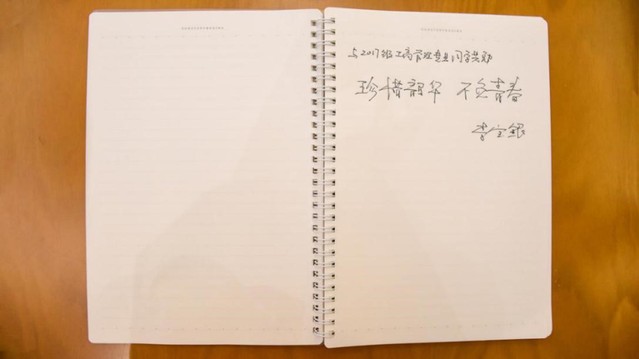 与2017级工商管理专业同学共勉
珍惜韶华 不负青春
李宝银